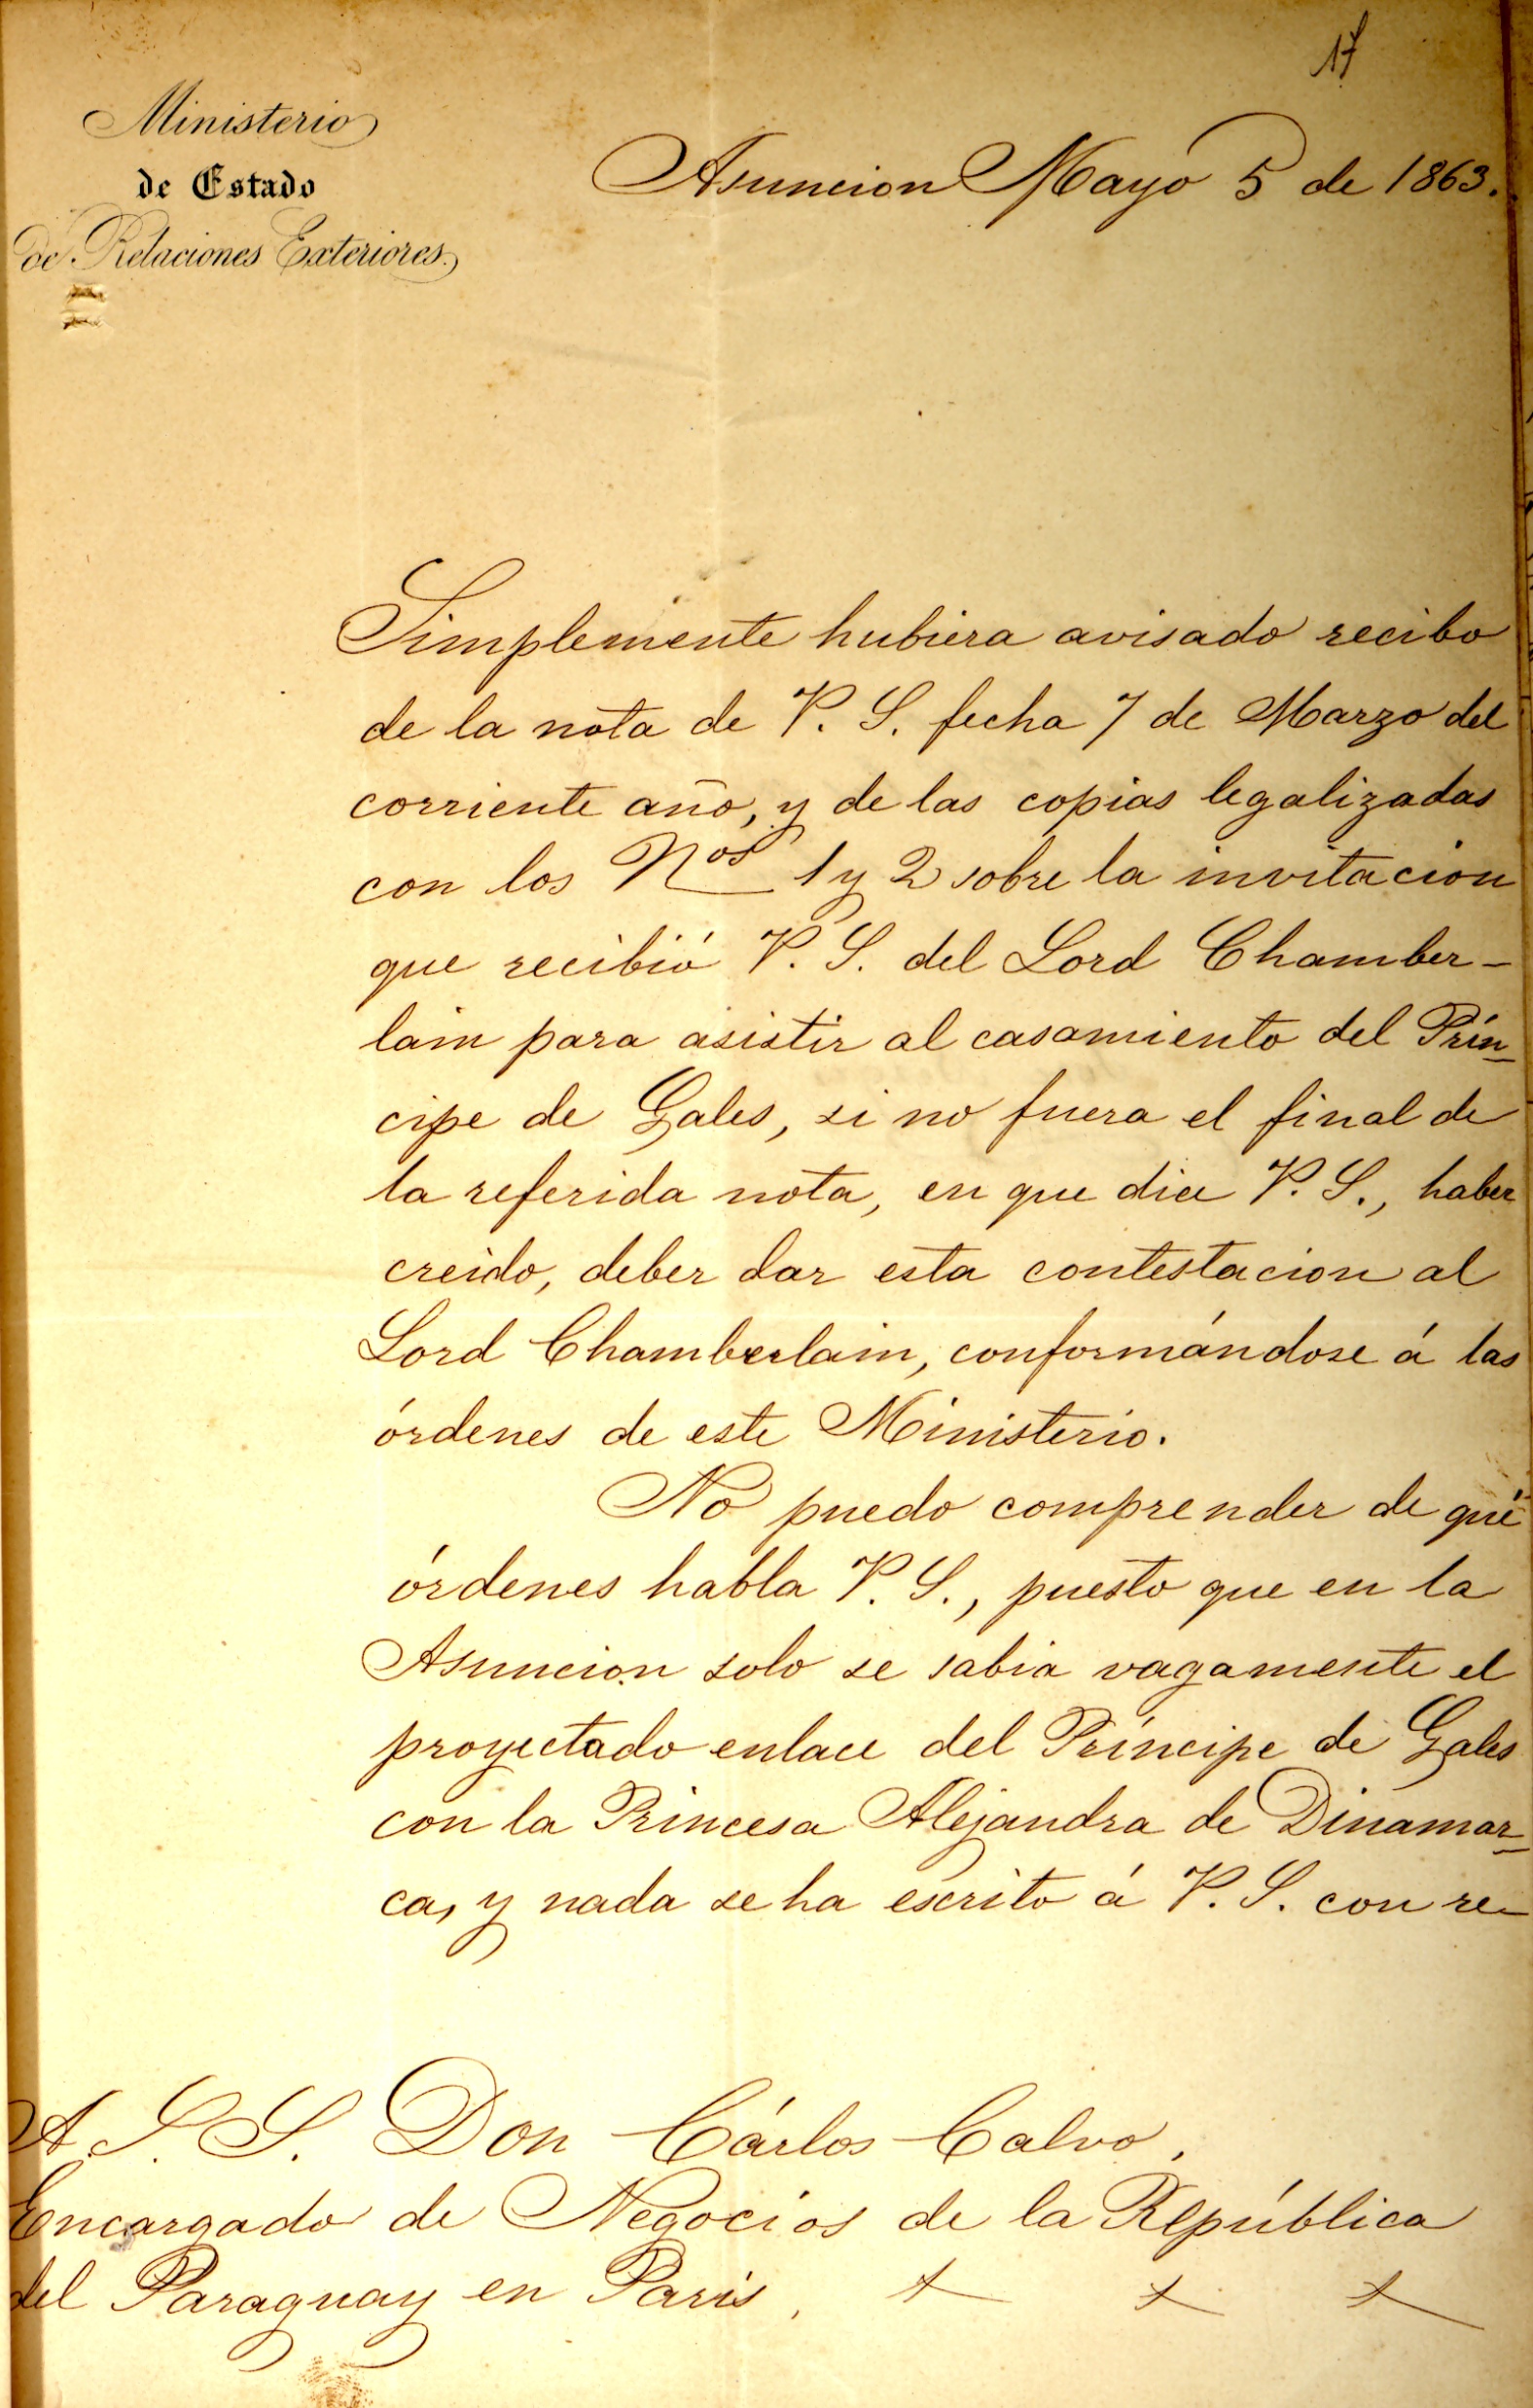 17
Ministerio
de Estado
de Relaciones Exteriores.
Asuncion Mayo 5 de 1863.
Simplemente hubiera avisado recibo
de la nota de V. S. fecha 7 de Marzo del
corriente año, y de las copias legalizadas
con los Nos 1 y 2 sobre la invitacion
que recibió V. S. del Lord Chamber-
lain para asistir al casamiento del Prín-
cipe de Gales, si no fuera el final de
la referida nota, en que dice V. S., haber
creido, deber dar esta contestacion al
Lord Chamberlain, conformándose á las
órdenes de este Ministerio.
No puedo comprender de qué
órdenes habla V. S., puesto que en la
Asuncion solo se sabia vagamente el
proyectado enlace del Príncipe de Gales
con la Princesa Alejandra de Dinamar-
ca, y nada se ha escrito á V. S. con re-
A. S. S. Don Cárlos Calvo,
Encargado de Negocios de la República
del Paraguay en Paris,